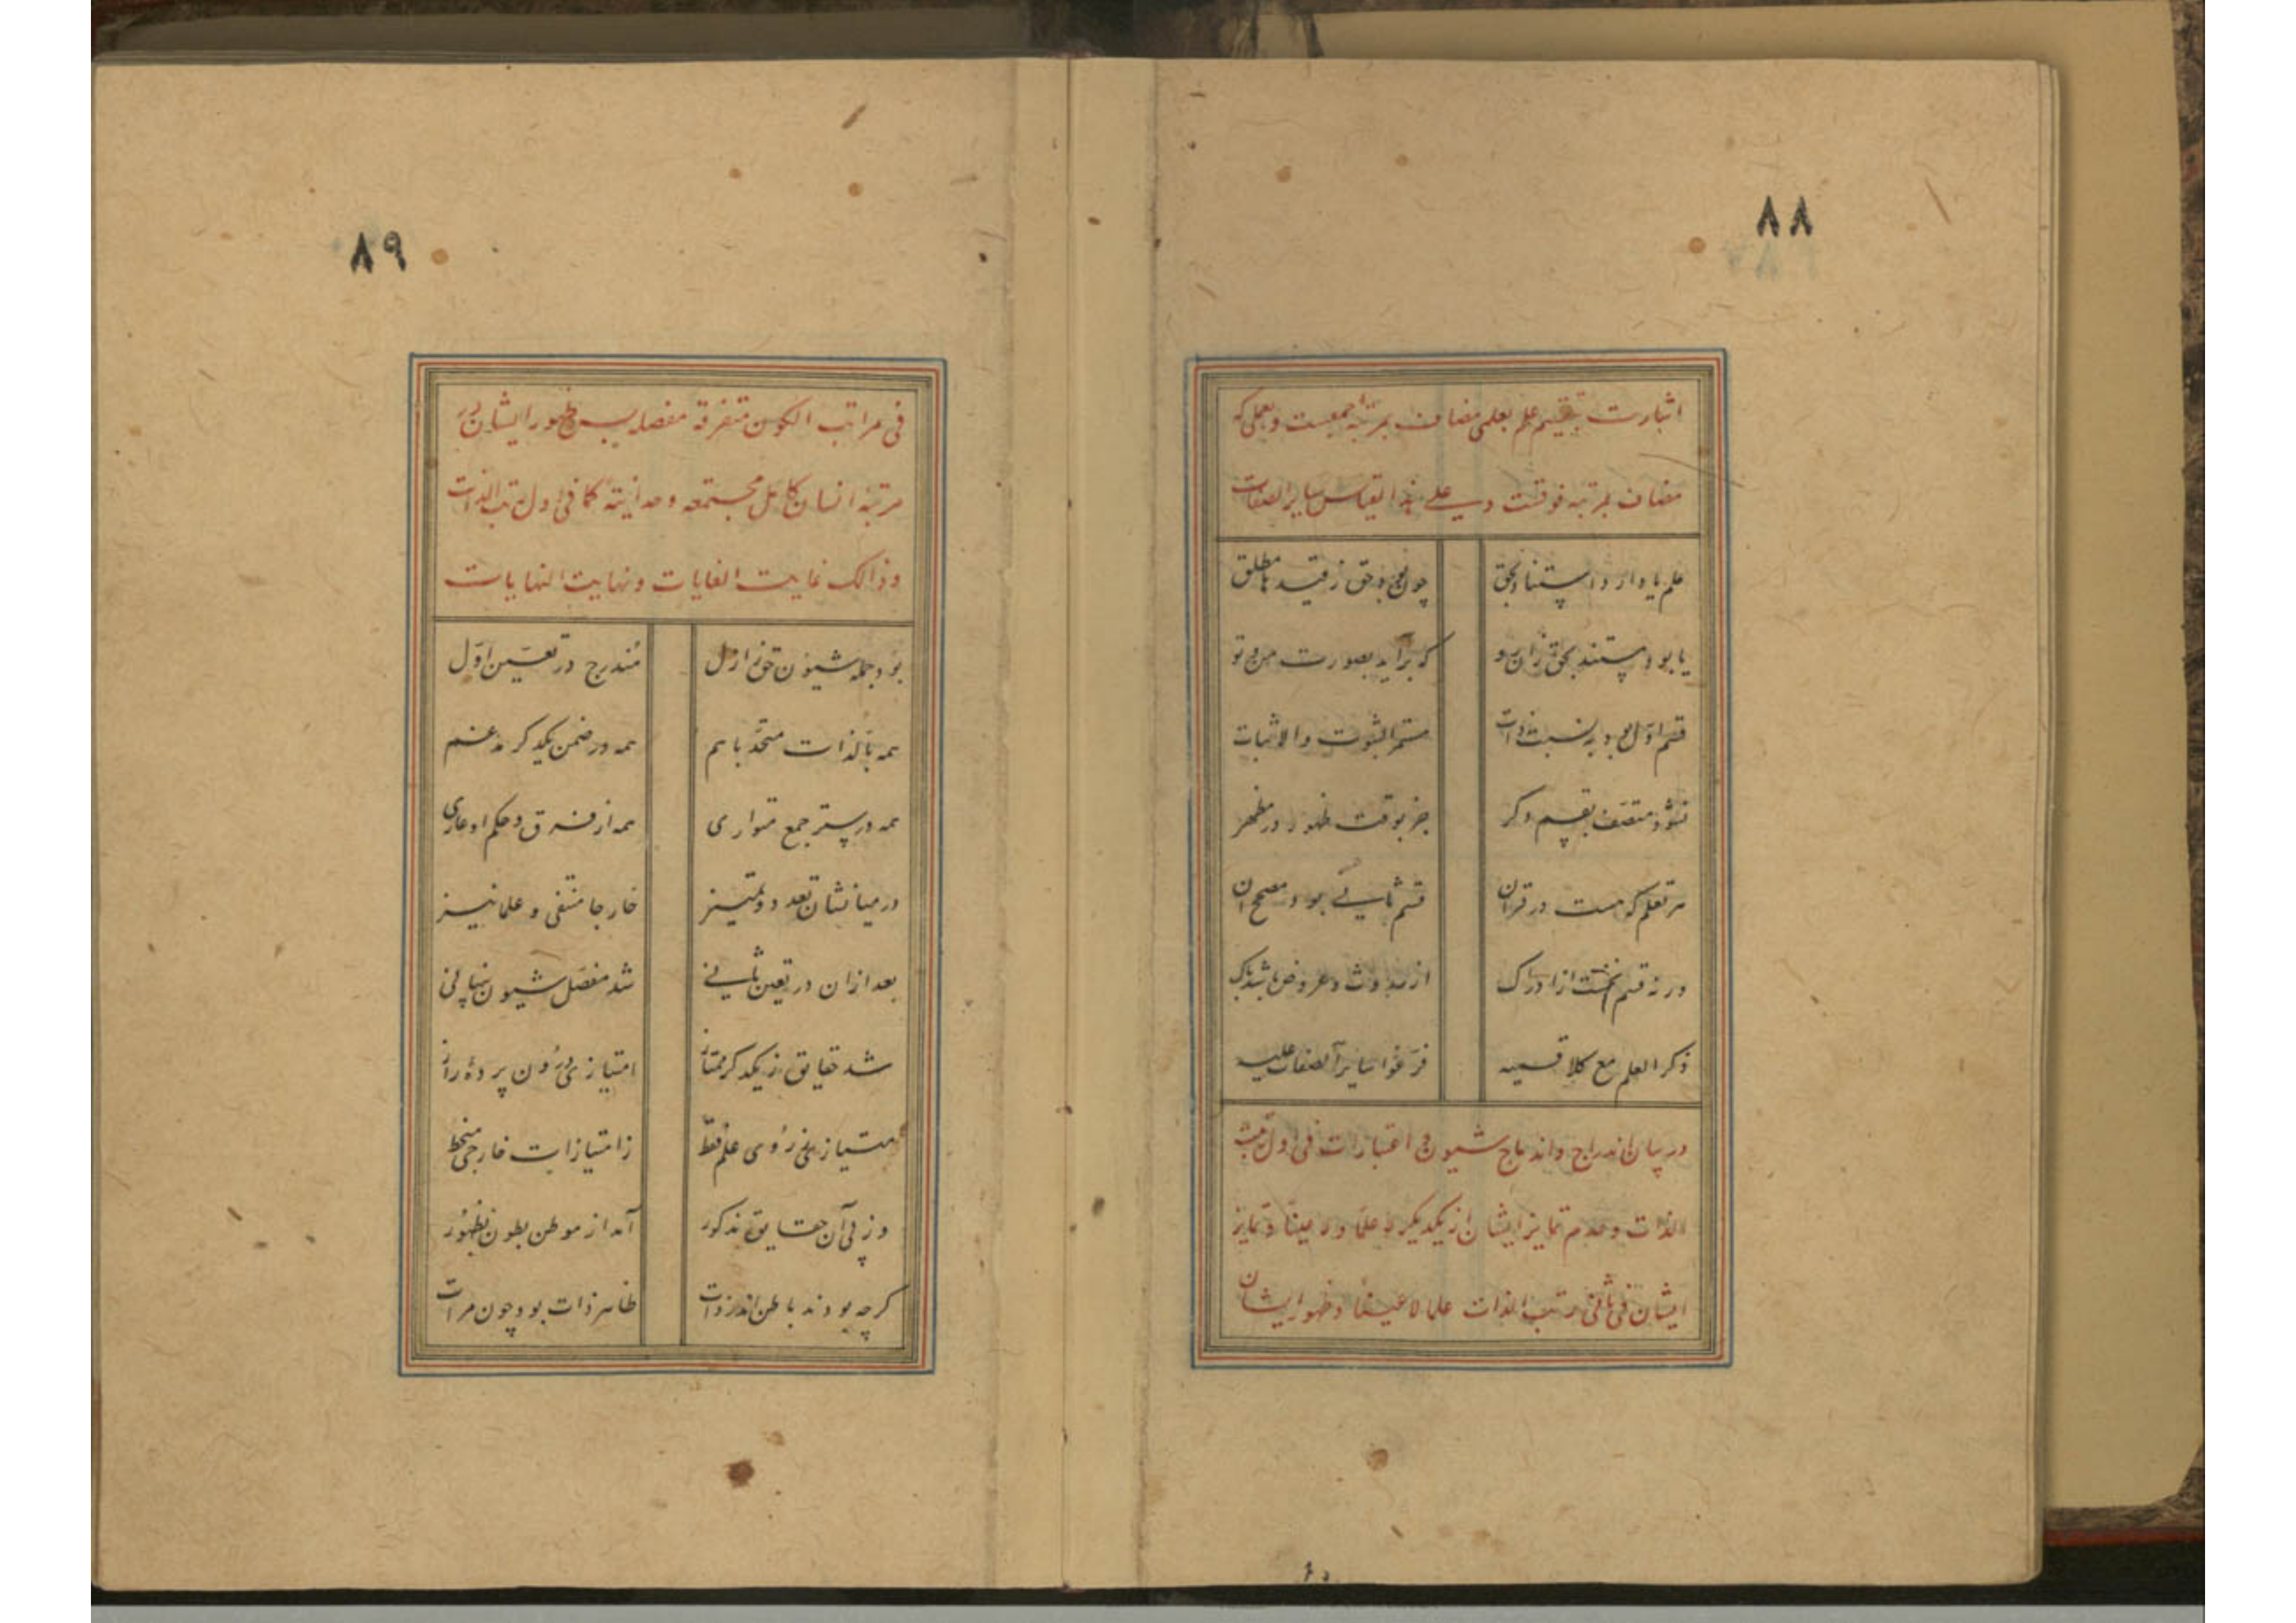 ٨٨
اشارت بتقسیم علم بعلمی مضاف بمرتبه جمعیت و بعلمی که
مضاف بمرتبه فرقست و علی هذا القیاس سایر الصفات
علم یا دارد استناد بحق چون بود حق ز قیدها مطلق
یا بود مستند بحق زان رو که برآید بصورت من و تو
قسم اول بود به نسبت ذات مستمر الثبوت والاثبات
نشود متصف بقسم دکر جز بوقت ظهور در مظهر
سر نعلم که هست در قران قسم ثانی بود مصحح ان
ورنه قسم نخست از ادراک از حدوث و عروض باشد پاک
ذکر العلم مع کلا قسمیه فرعوا سایر الصفات علیه
در بیان اندراج و اندماج شیون و اعتبارات فی اول رتب
الذات و عدم تمایز ایشان از یکدیکر لا علما ولا عینا و تمایز
ایشان فی ثانی رتب الذات علما لا عینا و ظهور ایشان
٨٩
فی مراتب الکون متفرقة مفصلة پس ظهور ایشان در
مرتبه انسان کامل مجتمعه وحدانیة کما فی اول رتب الذات
وذالک غایت الغایات ونهایت النهایات
بود جمله شیون حق ز ازل مندرج در تعین اول
همه بالذات متحد با هم همه در ضمن یکدکر مدغم
همه در ستر جمع متواری همه از فرق و حکم او عاری
در میانشان تعدد و تمییز خارجا منتفی و علما نیز
بعد ازان در تعین ثانی شد مفصل شیون پنهانی
شد حقایق ز یکدکر ممتاز امتیازی درون پردۀ راز
امتیازی ز روی علم فقط ز امتیازات خارجی منحط
وز پی آن حقایق مذکور آمد از موطن بطون بظهور
کرچه بودند باطن اندر ذات ظاهر ذات بود چون مرات